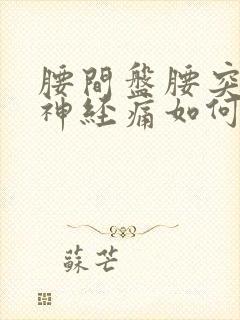 腰間盤腰突
神経痛如何
蘇芒